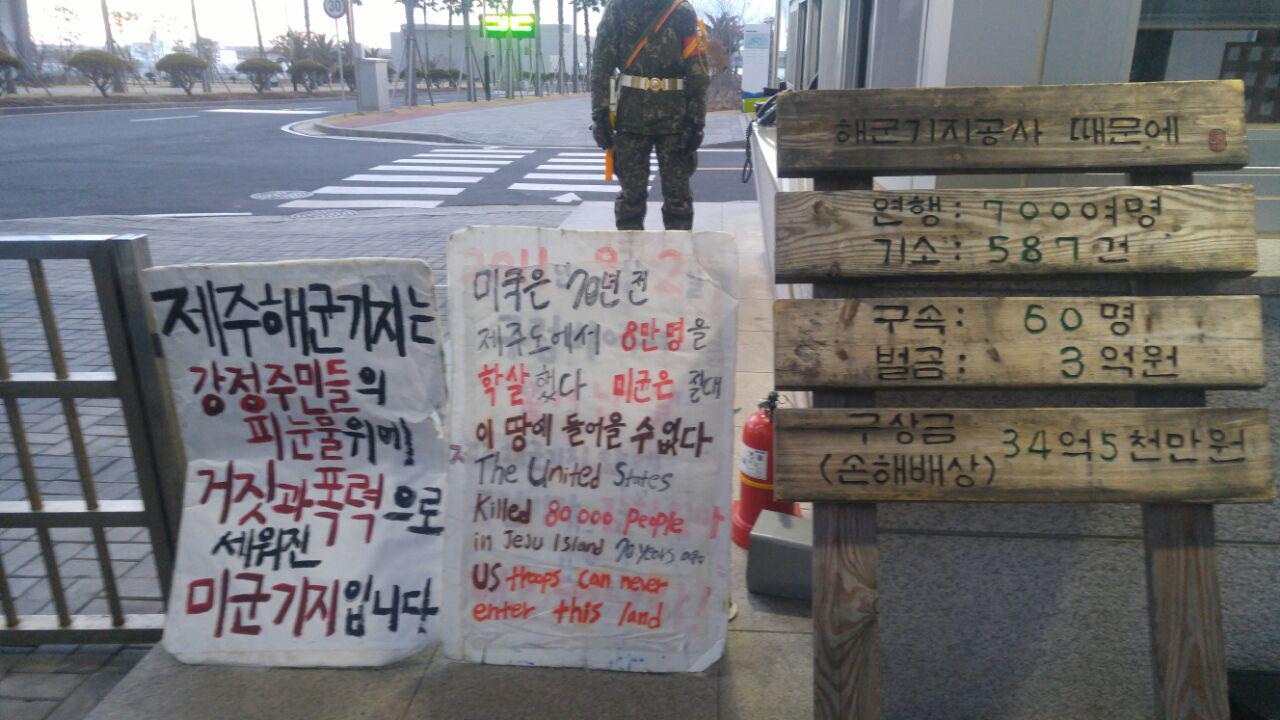 30
제주해군기지는
강정주민들의
피눈물위에
거짓과폭력으로
세워진
미군기지입니다
미국은 70년 전
제주도에서 8만명을
학살했다 미군은 절대
이 땅에 들어올 수 없다
The United States
Killed 80000 people
in Jeju Island 70 years ago
US troops can never
enter this land
해군기지공사 때문에
연행: 700여명
기소: 587건
구속: 60명
벌금: 3억원
구상금 34억5천만원
(손해배상)